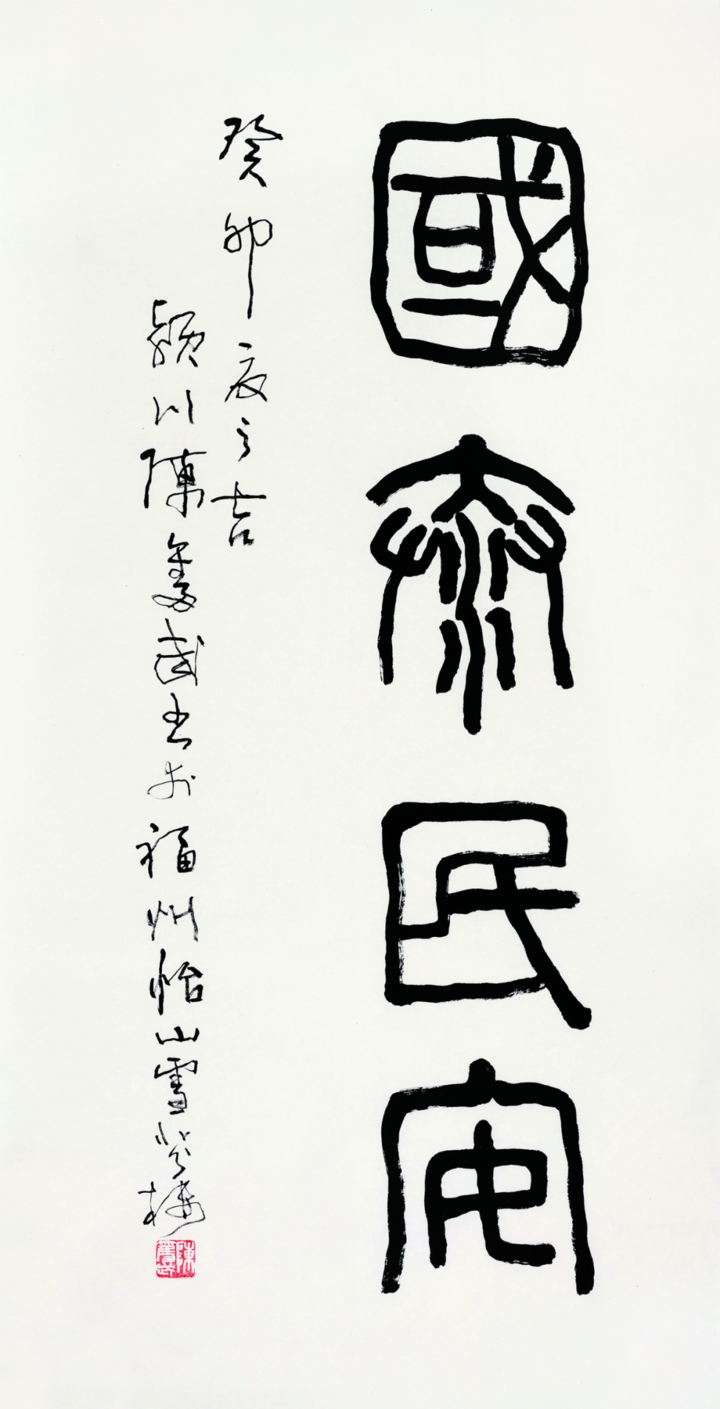 國泰民安
癸卯辰之吉
潁川陳奮武書於福州怡山雪樓
陳奮武